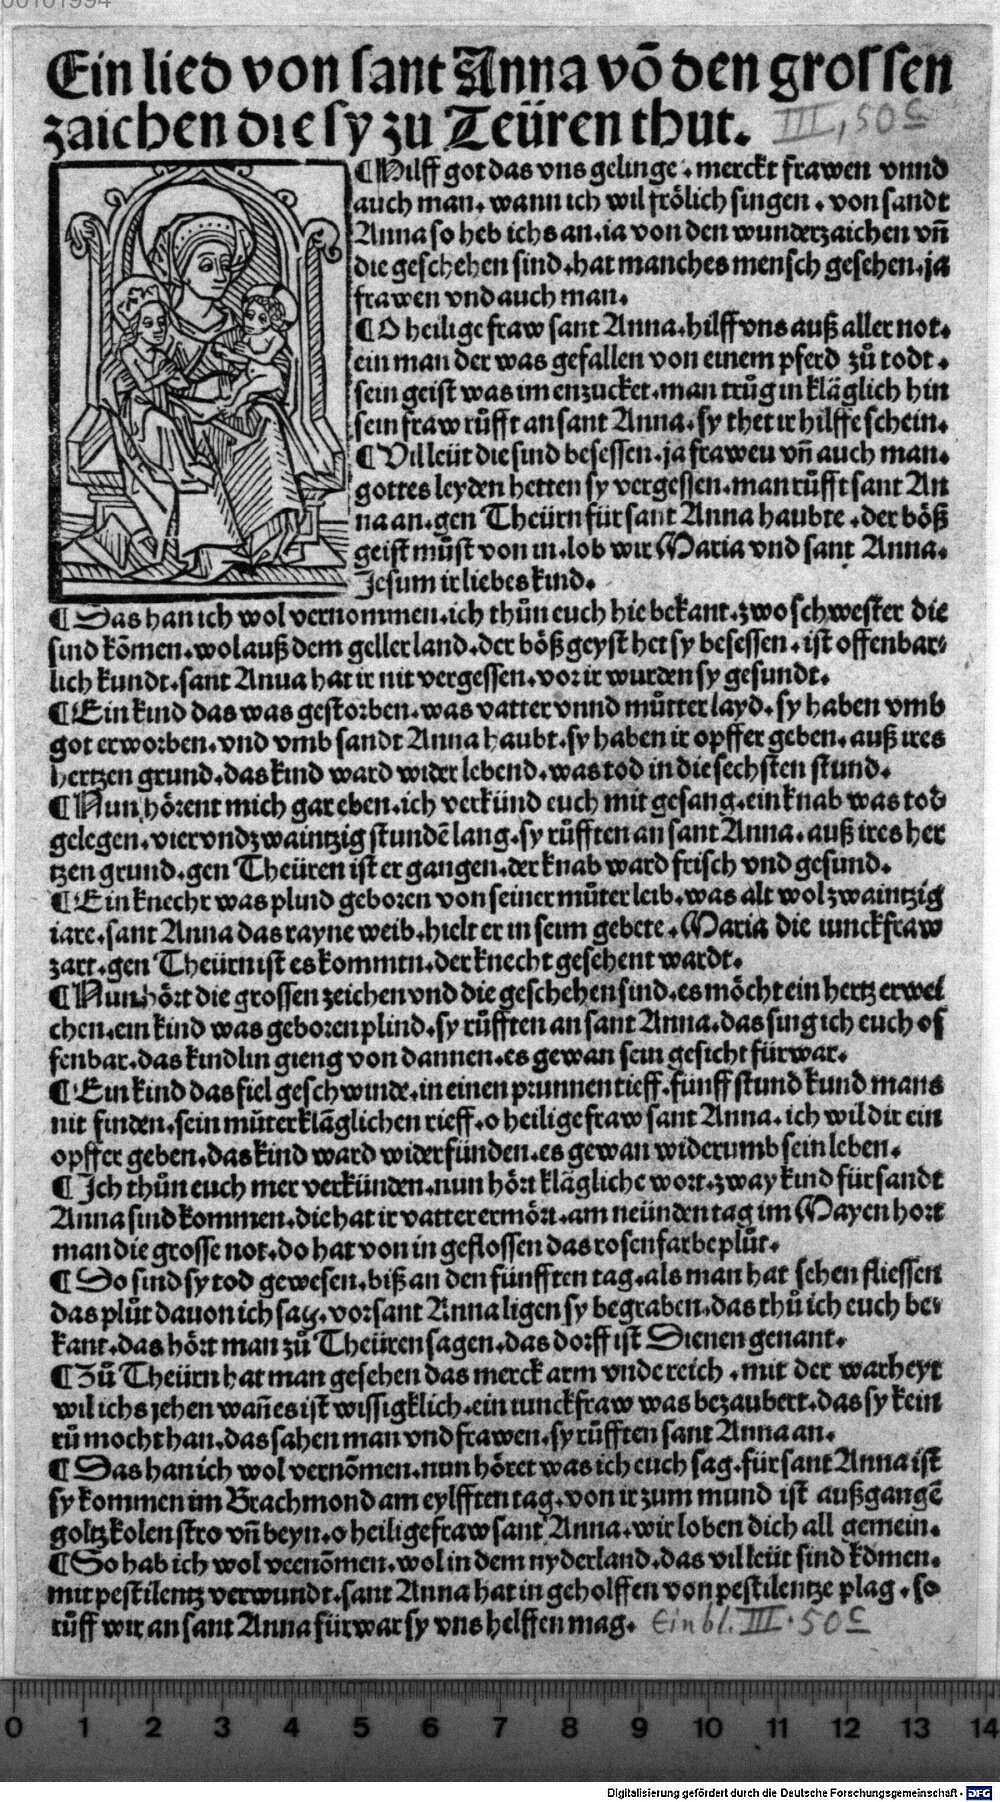 00101994
Ein lied von sant Anna võ den grossen
zaichen die sy zu Teüren thut.
III, 50 c
¶ Hilff got das vns gelinge . merckt frawen vnnd
auch man . wann ich wil frölich singen . von sandt
Anna so heb ichs an . ia von den wunderzaichen vñ
die geschehen sind . hat manches mensch gesehen . ja
frawen vnd auch man .
¶ O heilige fraw sant Anna . hilff vns auß aller not .
ein man der was gefallen von einem pferd zů todt .
sein geist was im enzucket . man trůg in kläglich hin
sein fraw růfft an sant Anna . sy thet ir hilffe schein .
¶ Vil leüt die sind besessen . ja fraweu vñ auch man .
gottes leyden hetten sy vergessen . man růfft sant An
na an . gen Theürn für sant Anna haubte . der böß
geist můst von in . lob wir Maria vnd sant Anna .
Jesum ir liebes kind .
¶ Das han ich wol vernommen . ich thůn euch hie bekant . zwo schwester die
sind kõmen . wol auß dem geller land . der böß geyst het sy besessen . ist offenbar-
lich kundt . sant Anua hat ir nit vergessen . vor ir wurden sy gesundt .
¶ Ein kind das was gestorben . was vatter vnnd můtter layd . sy haben vmb
got erworben . vnd vmb sandt Anna haubt . sy haben ir opffer geben . auß ires
hertzen grund . das kind ward wider lebend . was tod in die sechsten stund .
¶ Nun hörent mich gar eben . ich verkünd euch mit gesang . ein knab was tod
gelegen . vier vnd zwaintzig stundẽ lang . sy růfften an sant Anna . auß ires her
tzen grund . gen Theüren ist er gangen . der knab ward frisch vnd gesund .
¶ Ein knecht was plind geboren von seiner můter leib . was alt wol zwaintzig
iare . sant Anna das rayne weib . hielt er in seim gebete . Maria die iunckfraw
zart . gen Theürn ist es kommen . der knecht gesehent wardt .
¶ Nun hört die grossen zeichen vnd die geschehen sind . es möcht ein hertz erwei
chen . ein kind was geboren plind . sy růfften an sant Anna . das sing ich euch of
fenbar . das kindlin gieng von dannen . es gewan sein gesicht fürwar .
¶ Ein kind das fiel geschwinde . in einen prunnen tieff . fünff stund kund mans
nit finden . sein můter kläglichen rieff . o heilige fraw sant Anna . ich wil dir ein
opffer geben . das kind ward widerfünden . es gewan widerumb sein leben .
¶ Ich thůn euch mer verkünden . nun hört klägliche wort . zway kind für sandt
Anna sind kommen . die hat ir vatter ermört . am neünden tag im Mayen hort
man die grosse not . do hat von in geflossen das rosenfarbe plůt .
¶ So sind sy tod gewesen . biß an den fünfften tag . als man hat sehen fliessen
das plůt dauon ich sag . vor sant Anna ligen sy begraben . das thů ich euch be-
kant . das hört man zů Theüren sagen . das dorff ist Dienen genant .
¶ Zů Theürn hat man gesehen das merck arm vnde reich . mit der warheyt
wil ichs jehen wañ es ist wissigklich . ein iunckfraw was bezaubert . das sy kein
rů mocht han . das sahen man vnd frawen . sy růfften sant Anna an .
¶ Das han ich wol vernõmen . nun höret was ich euch sag . für sant Anna ist
sy kommen im Brachmond am eylfften tag . von ir zum mund ist außgangẽ
goltz kolen stro vñ beyn . o heilige fraw sant Anna . wir loben dich all gemein .
¶ So hab ich wol veenõmen . wol in dem nyderland . das vil leüt sind kõmen .
mit pestilentz verwundt . sant Anna hat in geholffen von pestilentze plag . so
růff wir an sant Anna fürwar sy vns helffen mag .
Einbl. III. 50 c
0 1 2 3 4 5 6 7 8 9 10 11 12 13 14
Digitalisierung gefördert durch die Deutsche Forschungsgemeinschaft - DFG